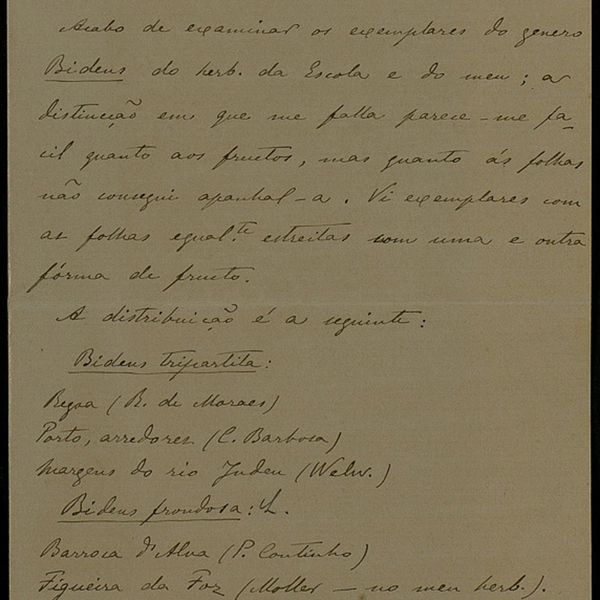 Acabo de examinar os exemplares do genero
Bidens do herb. da Escola e do meu; a
distincção em que me falla parece-me fa-
cil quanto aos fructos, mas quanto ás folhas
não consegui apanhal-a. Vi exemplares com
as folhas egual.te estreitas com uma e outra
fórma de fructo.
A distribuição é a seguinte:
Bidens tripartita:
Regoa (B. de Moraes)
Porto, arredores (C. Barbosa)
Margens do rio Judeu (Welw.)
Bidens frondosa: L.
Barroca d'Alva (P. Coutinho)
Figueira da Foz (Moller – no meu herb.).